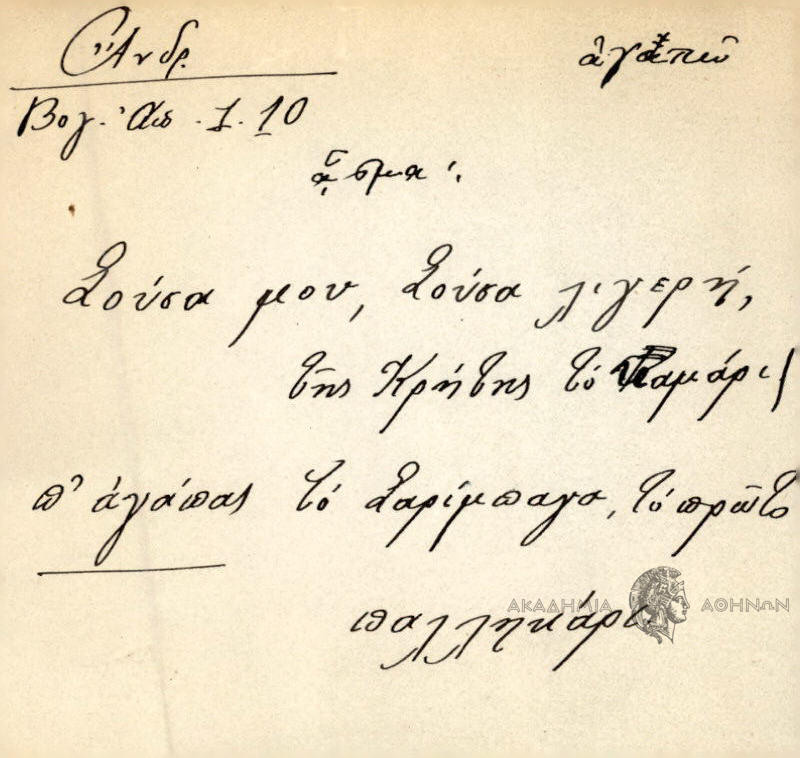 Ἄνδρ. ἀγαπῶ
Βογ. Αω. 1. 10
ᾆσμα:
Σούσα μου, Σούσα λιγερή,
τῆς Κρήτης τὸ καμάρι
π' ἀγάπας τὸ Σαρίμπαγα, τὸ πρῶτο
παλληκάρι
ΑΚΑΔΗΜΙΑ ΑΘΗΝΩΝ